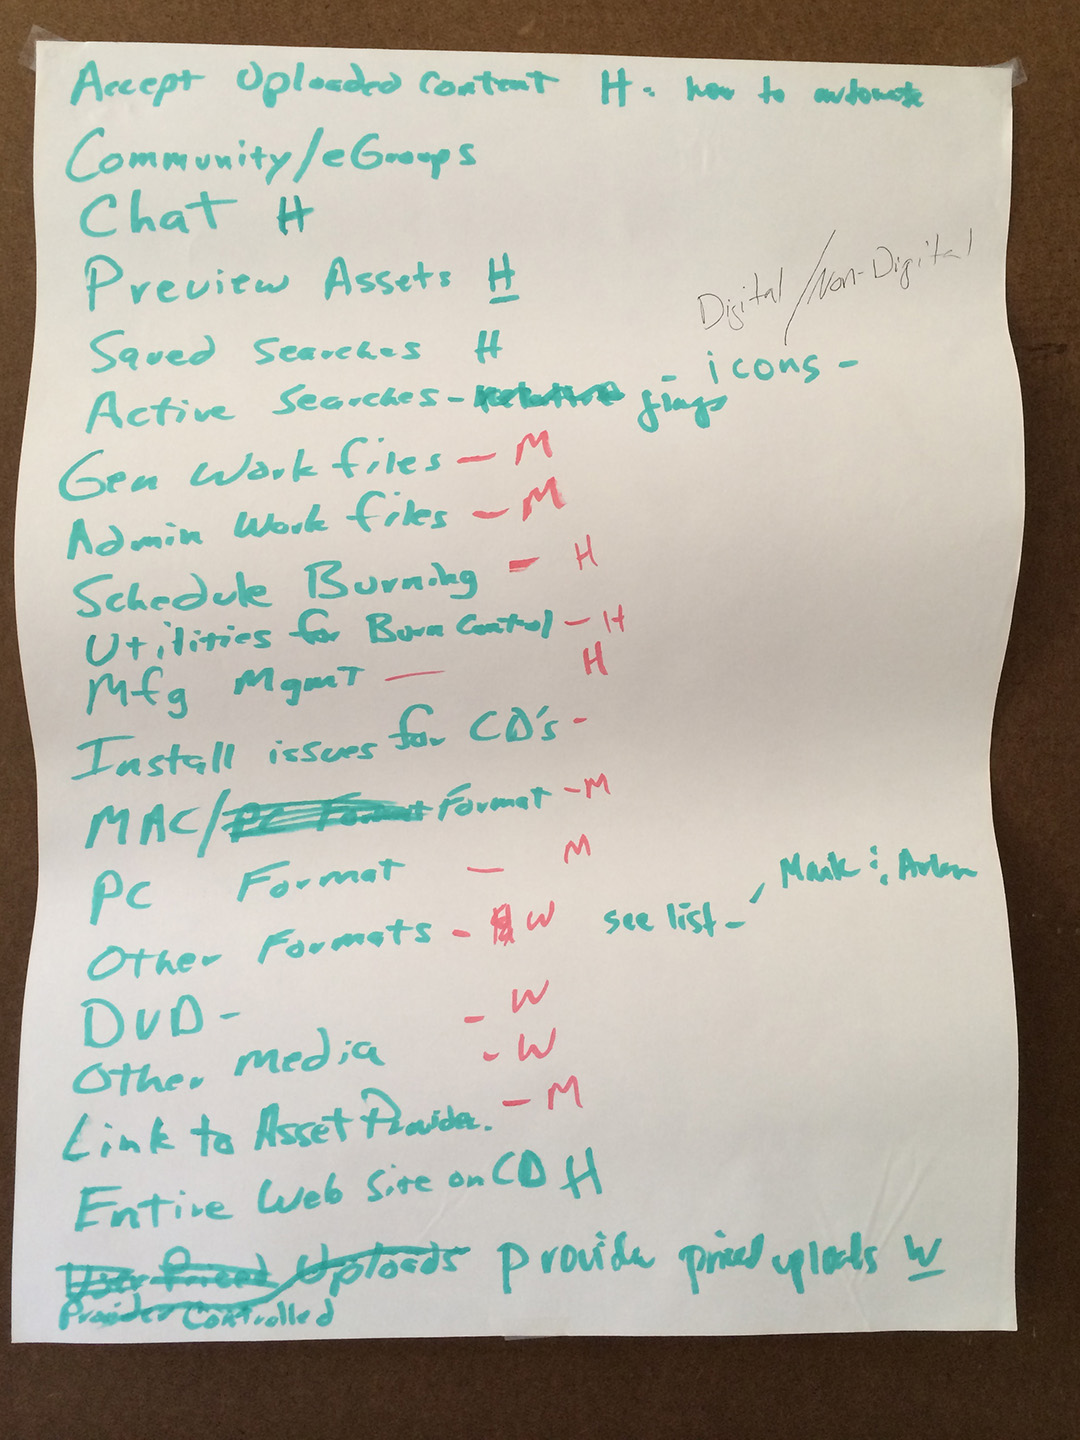 Accept Uploaded Content H - how to automate
Community/eGroups
Chat H
Preview Assets H
Digital/Non-Digital
Saved Searches H
Active Searches - flags - icons -
Gen Work files - M
Admin Work files - M
Schedule Burning - H
Utilities for Burn Control - H
Mfg Mgmt - H
Install issues for CD's -
MAC/PC Format Format - M
PC Format - M
Other Formats - W see list - Mark & Arlen
DVD - - W
Other media - W
Link to Asset Provider. - M
Entire Web Site on CD H
User Priced Uploads Provider priced uploads W
Provider Controlled